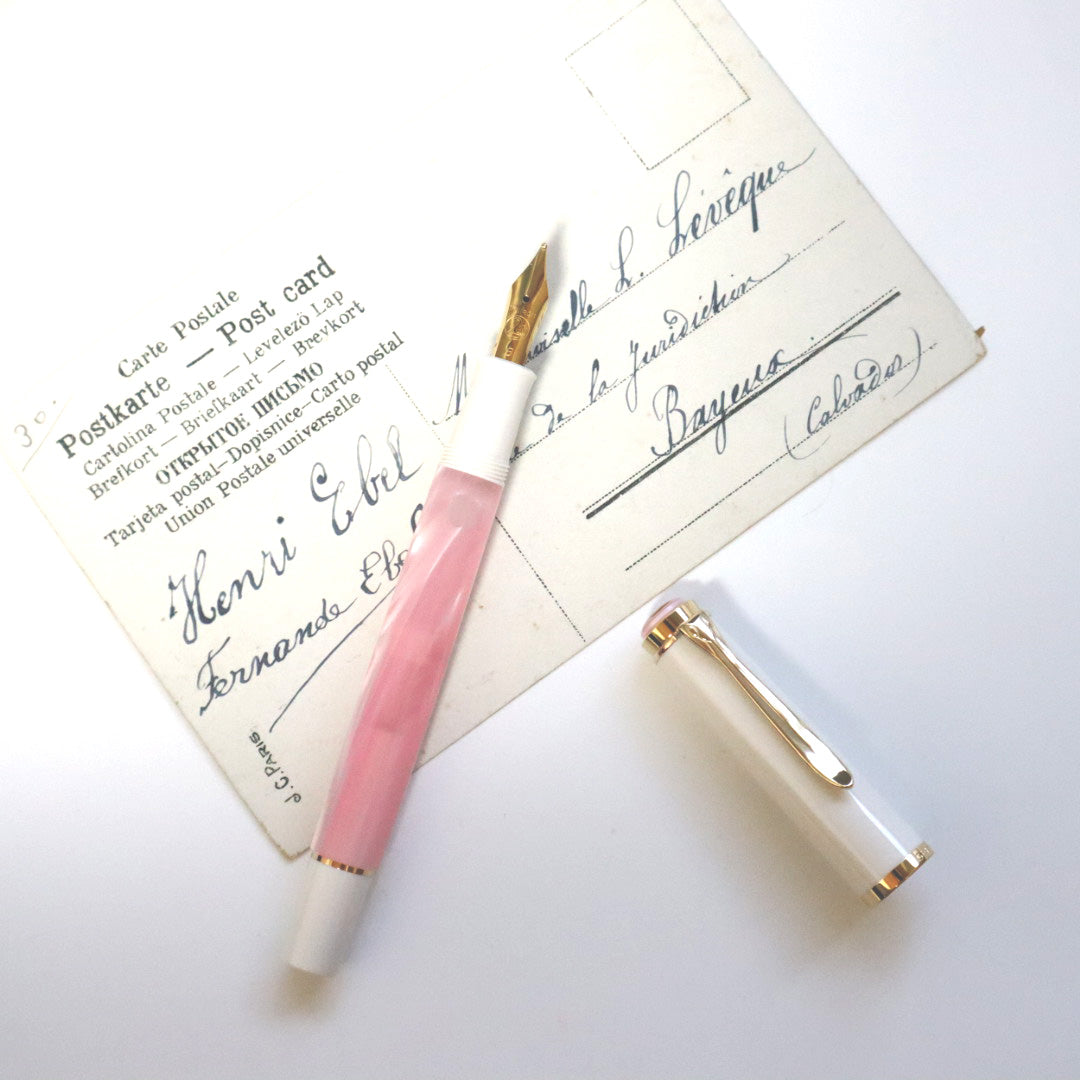 30
Carte Postale
Postkarte — Post card
Cartolina Postale — Levelezö Lap
Brefkort — Briefkaart — Brevkort
ОТКРЫТОЕ ПИСЬМО
Tarjeta postal—Dopisnice—Carto postal
Union Postale universelle
Henri Ebel
Fernande Ebe
J.C. PARIS
M oiselle L. Lévêque
de la Juridiction
Bayeux.
(Calvados).